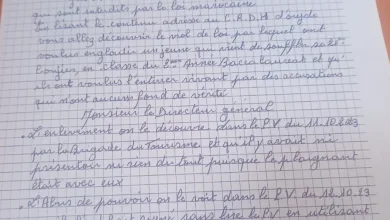 qui sont interdits par la loi marocaine
En lisant le contenu adressé au C.R.D.H d'oujda
vous allez découvrir le viol de loi par lequel ont
voulus englober un jeune qui vient de souffler sa
en classe du 2eme Année Baccalaureat et qu'
ils ont voulus l'enterrer vivant par des accusations
qui n'ont aucun fond de vérité
Monsieur le Directeur général
L'enlèvement on le découvre dans le P.V. du 11.10.2023
par la Brigade du Tourisme et qu'il y avait ni
ni rien du tout puisque le plaignant
était avec eux
L'Abus de pouvoir on le voit dans le P.V. du 12.10.23
sans lire le P.V. en utilisant